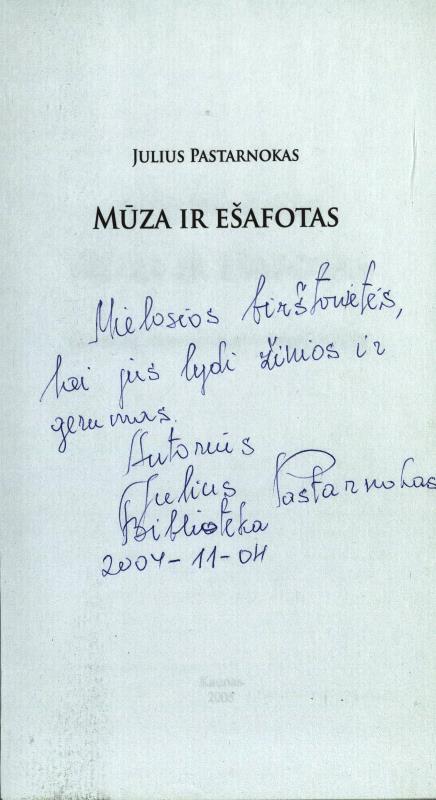 JULIUS PASTARNOKAS
MŪZA IR EŠAFOTAS
Mielosios birštonietės,
tei jūs lydi žinios ir
gerumas.
Autorius
Julius Pastarnokas
Biblioteka
2007-11-04
Kaunas
2005